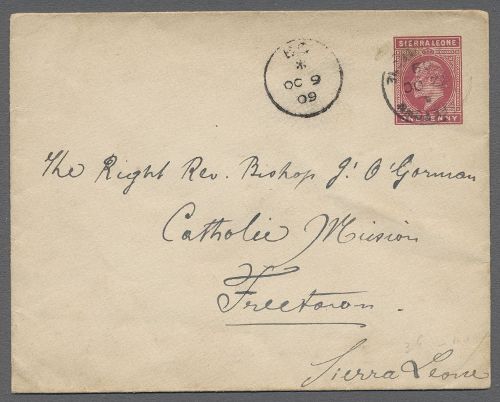 SIERRA LEONE
OC 9
09
ONE PENNY
The Right Rev. Bishop J. O'Gorman
Catholic Mission
Freetown.
Sierra Leone